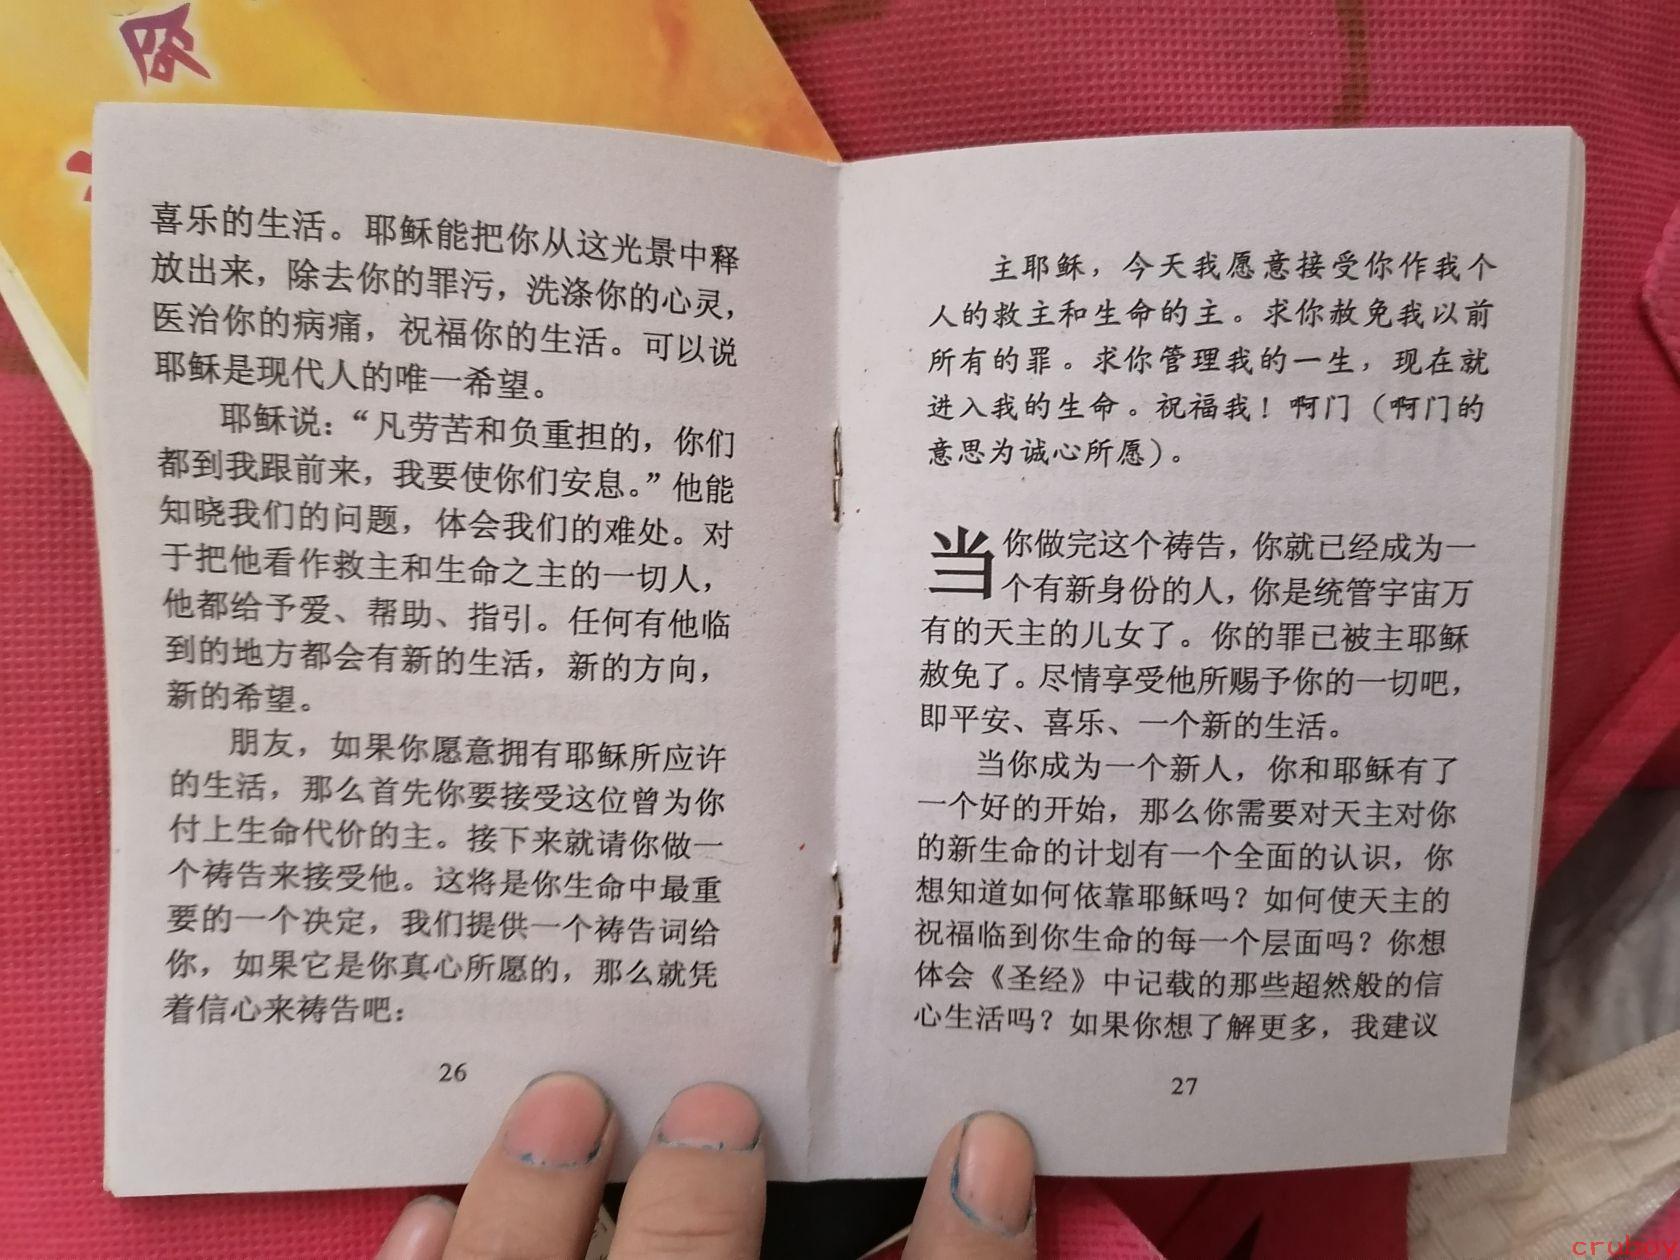 喜乐的生活。耶稣能把你从这光景中释
放出来，除去你的罪污，洗涤你的心灵，
医治你的病痛，祝福你的生活。可以说
耶稣是现代人的唯一希望。
耶稣说：“凡劳苦和负重担的，你们
都到我跟前来，我要使你们安息。”他能
知晓我们的问题，体会我们的难处。对
于把他看作救主和生命之主的一切人，
他都给予爱、帮助、指引。任何有他临
到的地方都会有新的生活，新的方向，
新的希望。
朋友，如果你愿意拥有耶稣所应许
的生活，那么首先你要接受这位曾为你
付上生命代价的主。接下来就请你做一
个祷告来接受他。这将是你生命中最重
要的一个决定，我们提供一个祷告词给
你，如果它是你真心所愿的，那么就凭
着信心来祷告吧：
26
主耶稣，今天我愿意接受你作我个
人的救主和生命的主。求你赦免我以前
所有的罪。求你管理我的一生，现在就
进入我的生命。祝福我！啊门（啊门的
意思为诚心所愿）。
当你做完这个祷告，你就已经成为一
个有新身份的人，你是统管宇宙万
有的天主的儿女了。你的罪已被主耶稣
赦免了。尽情享受他所赐予你的一切吧，
即平安、喜乐、一个新的生活。
当你成为一个新人，你和耶稣有了
一个好的开始，那么你需要对天主对你
的新生命的计划有一个全面的认识，你
想知道如何依靠耶稣吗？如何使天主的
祝福临到你生命的每一个层面吗？你想
体会《圣经》中记载的那些超然般的信
心生活吗？如果你想了解更多，我建议
27